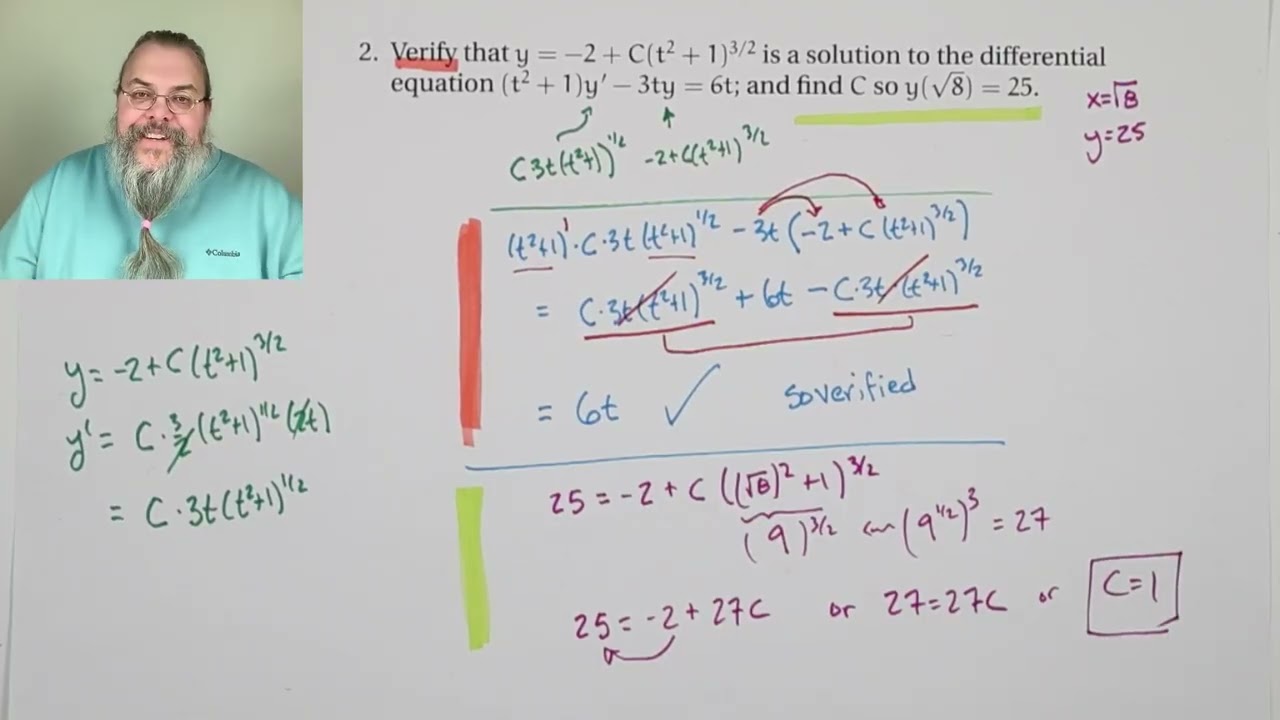 2. Verify that y = −2 + C(t² + 1)^{3/2} is a solution to the differential
equation (t² + 1)y′ − 3ty = 6t; and find C so y(√8) = 25.
x=√8
y=25
C3t(t²+1)^{1/2} -2+C(t²+1)^{3/2}
(t²+1)^1·C·3t(t²+1)^{1/2} − 3t(−2+C(t²+1)^{3/2})
= C·3t(t²+1)^{3/2} + 6t − C·3t·(t²+1)^{3/2}
= 6t ✓ so verified
Columbia
y=-2+C(t²+1)^{3/2}
y'= C·3/2(t²+1)^{1/2}(2t)
= C·3t(t²+1)^{1/2}
25=-2+C((√8)²+1)^{3/2}
(9)^{3/2} (9^{1/2})^3=27
25=-2+27C or 27=27C or C=1